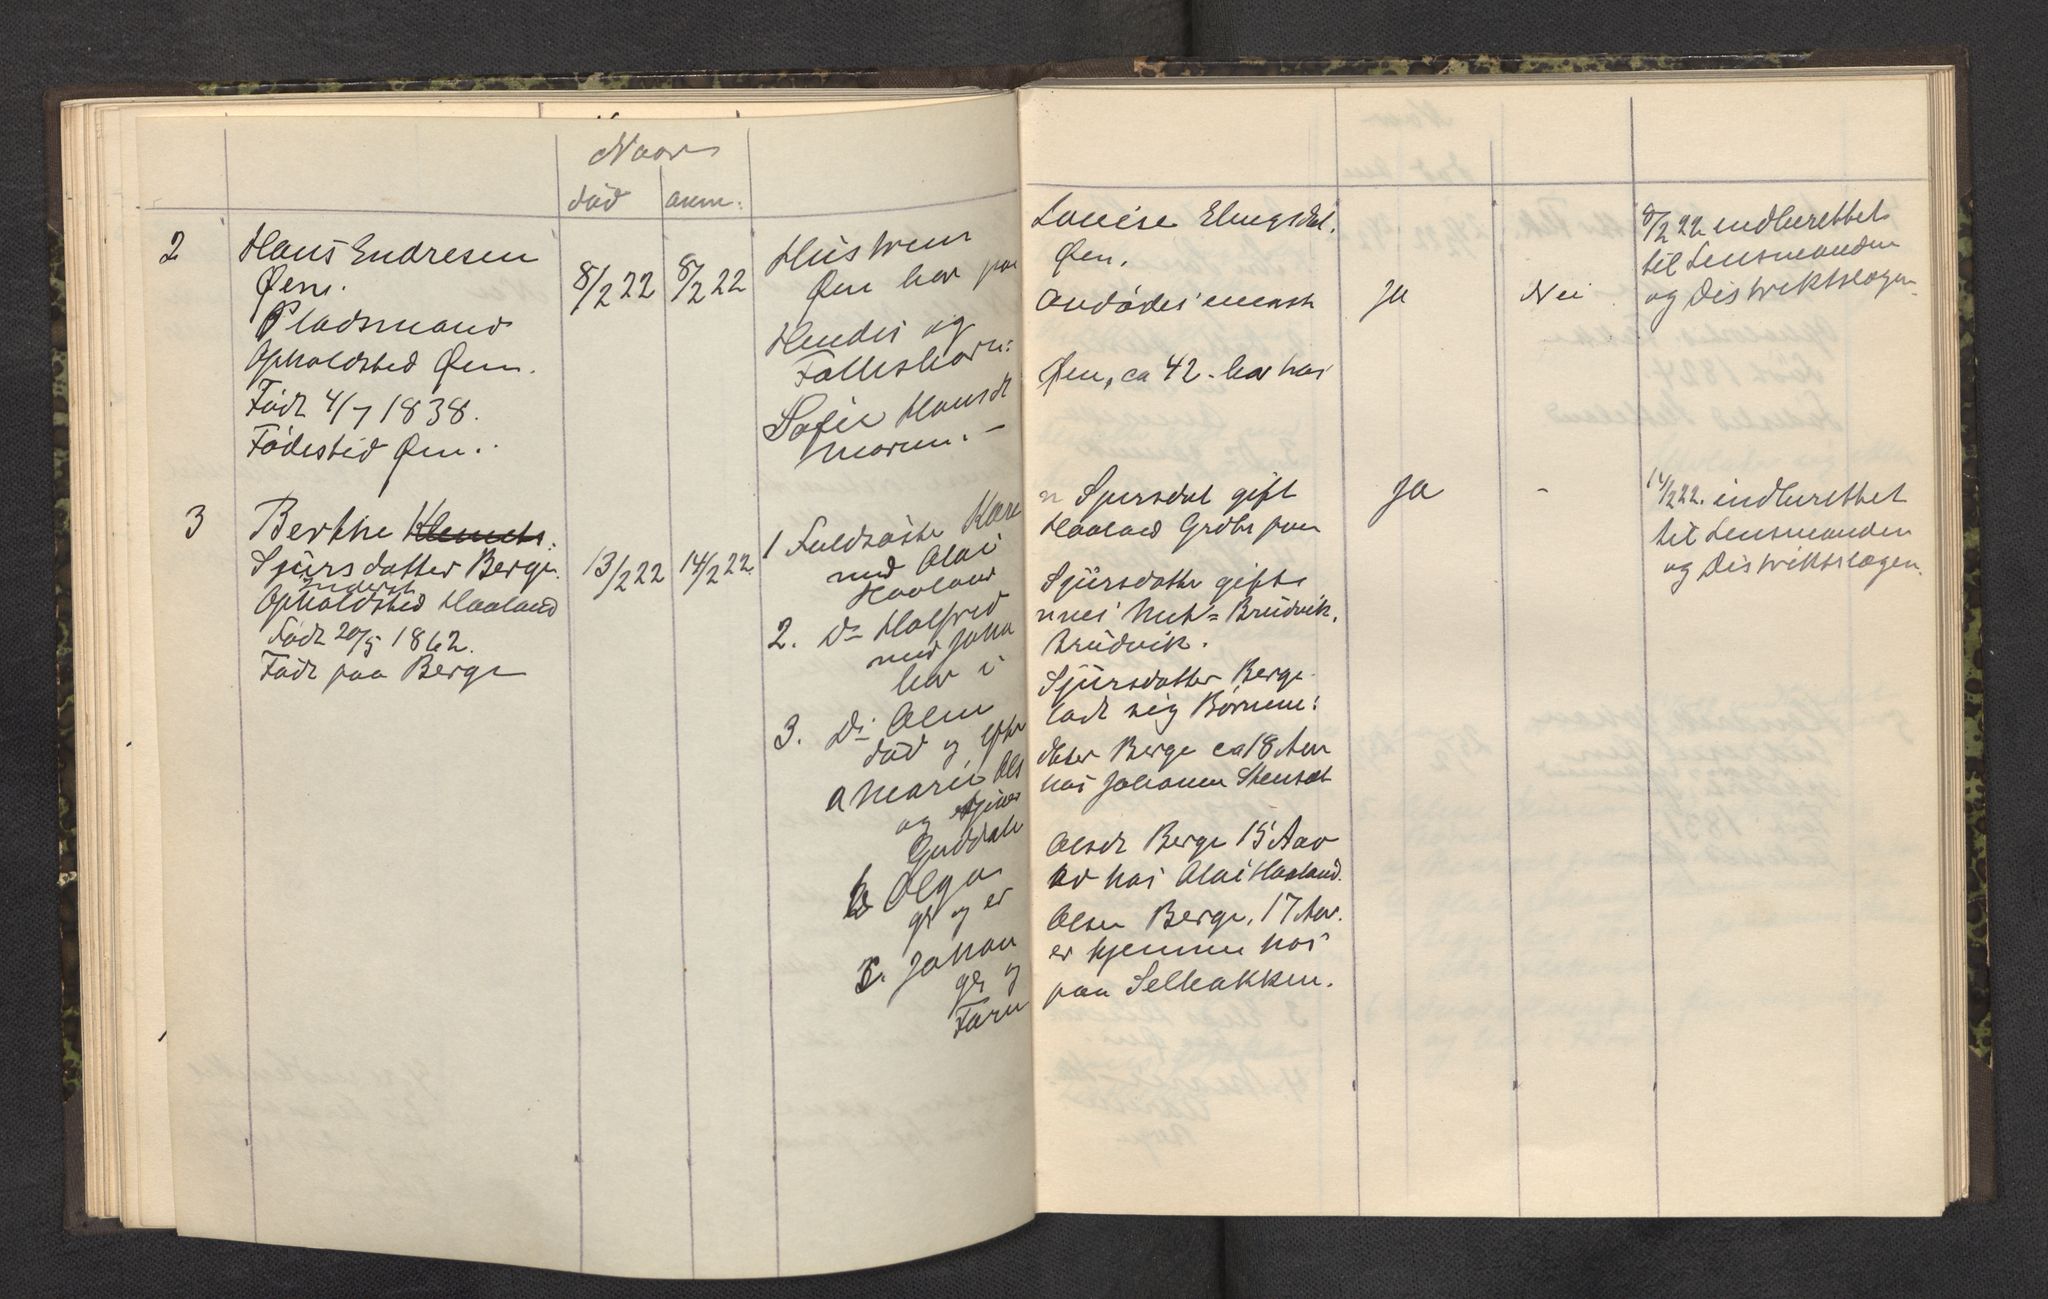 Naar
død anm:
2 Hans Endresen
Øen.
Pladsmand
Opholdsted Øen.
Født 4/7 1838.
Fødested Øen.
8/2 22 8/2 22
Hustruen
Øen har paa
Hendes og
Fællesbørn:
Sofie Hansdt
Maren. —
Louise Elingsdat.
Øen.
Andødes ensk
Øen, ca 42. bor hos
Ja Nei
8/2 22 indberettet
til Lensmanden
og Distriktslægen.
3 Berthe Klemets.
Sjursdatter Berge.
Inderst
Opholdsted Haaland
Født 20/5 1862.
Født paa Berge
13/2 22 14/2 22.
1 Fuldsøster Kare
med Olai
Haaland
2. Do Halfred
med Joha
bor i
3. Do Olen
død og efter
a Marie Ols
og tjener
Guddal
b Olga
gl og er
c. Johan
gl og
Faren
n Sjursdat gift
Haaland Grdbr paa
Sjürsdatter gift
nnes Brüdvik,
Brüdvik.
Sjürsdatter Berge
ladt sig Børnene:
dtter Berge ca 18 Aar
hos Johannes Stensæt
Olsdt Berge 15 Aar
hos Olai Haaland.
Olsen Berge, 17 Aar.
er hjemme hos
paa Selbakken.
Ja -
14/2 22. indberettet
til Lensmanden
og Distriktslægen.